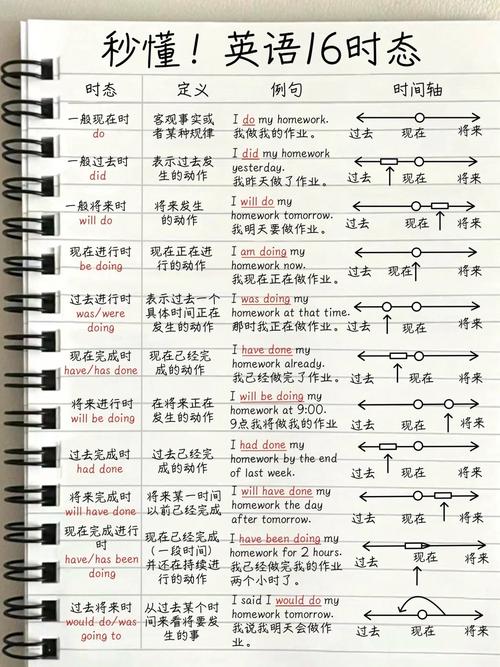 秒懂！英语16时态
时态 定义 例句 时间轴
一般现在时
do
客观事实或
者某种规律
I do my homework.
我做我的作业。
过去 现在 将来
一般过去时
did
表示过去发
生的动作
I did my homework
yesterday.
我昨天做了作业。
过去 现在 将来
一般将来时
will do
将来发生
的动作
I will do my
homework tomorrow.
我明天要做作业。
过去 现在 将来
现在进行时
be doing
现在正在进
行的动作
I am doing my
homework now.
我现在正在做作业。
过去 现在 将来
过去进行时
was/were
doing
表示过去一个
具体时间正在
发生的动作
I was doing my
homework at that time.
那时我正在做作业。
过去 现在 将来
现在完成时
have/has done
现在已经完
成的动作
I have done my
homework already.
我已经做完了作业。
过去 现在 将来
将来进行时
will be doing
在将来正在
发生的动作
I will be doing my
homework at 9:00.
9点我将做我的作业
过去 现在 将来
过去完成时
had done
过去已经完
成的动作
I had done my
homework by the end
of last week.
过去 现在 将来
将来完成时
will have done
将来某一时间
以前已经完成
I will have done my
homework the day
after tomorrow.
过去 现在 将来
现在完成进行
时
have/has been
doing
现在已经完成
(一段时间)
并还在持续进
行的动作
I have been doing my
homework for 2 hours.
我已经做完我的作业
两个小时了。
过去 现在 将来
过去将来时
would do/was
going to
从过去某个时
间来看将要发
生的事
I said I would do my
homework tomorrow.
我说我明天会做作
业。
过去 现在 将来